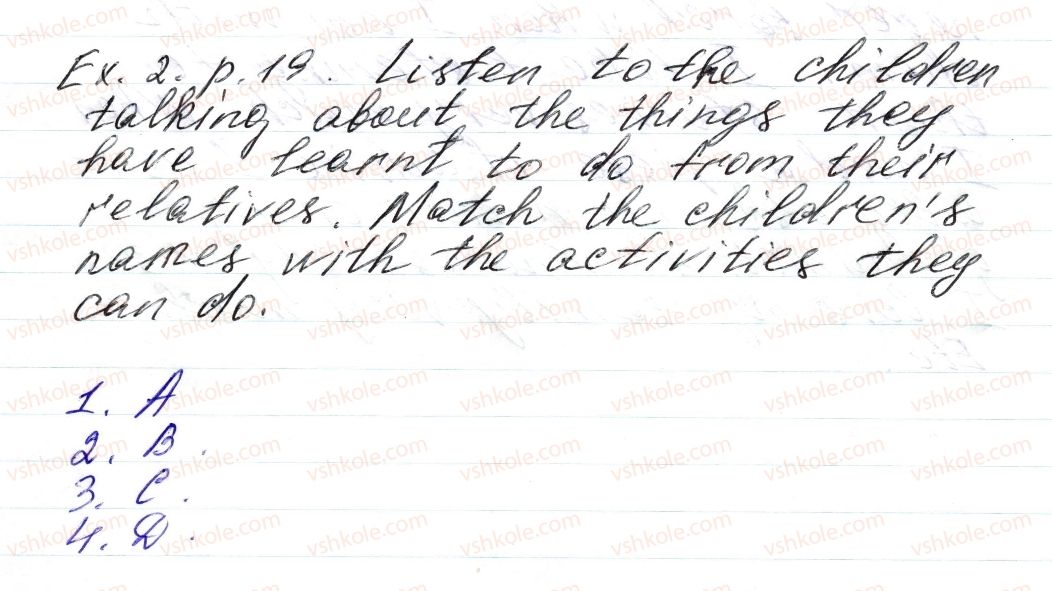 Ex. 2. p. 19. Listen to the children
talking about the things they
have learnt to do from their
relatives. Match the children's
names with the activities they
can do.
1. A
2. B.
3. C.
4. D.